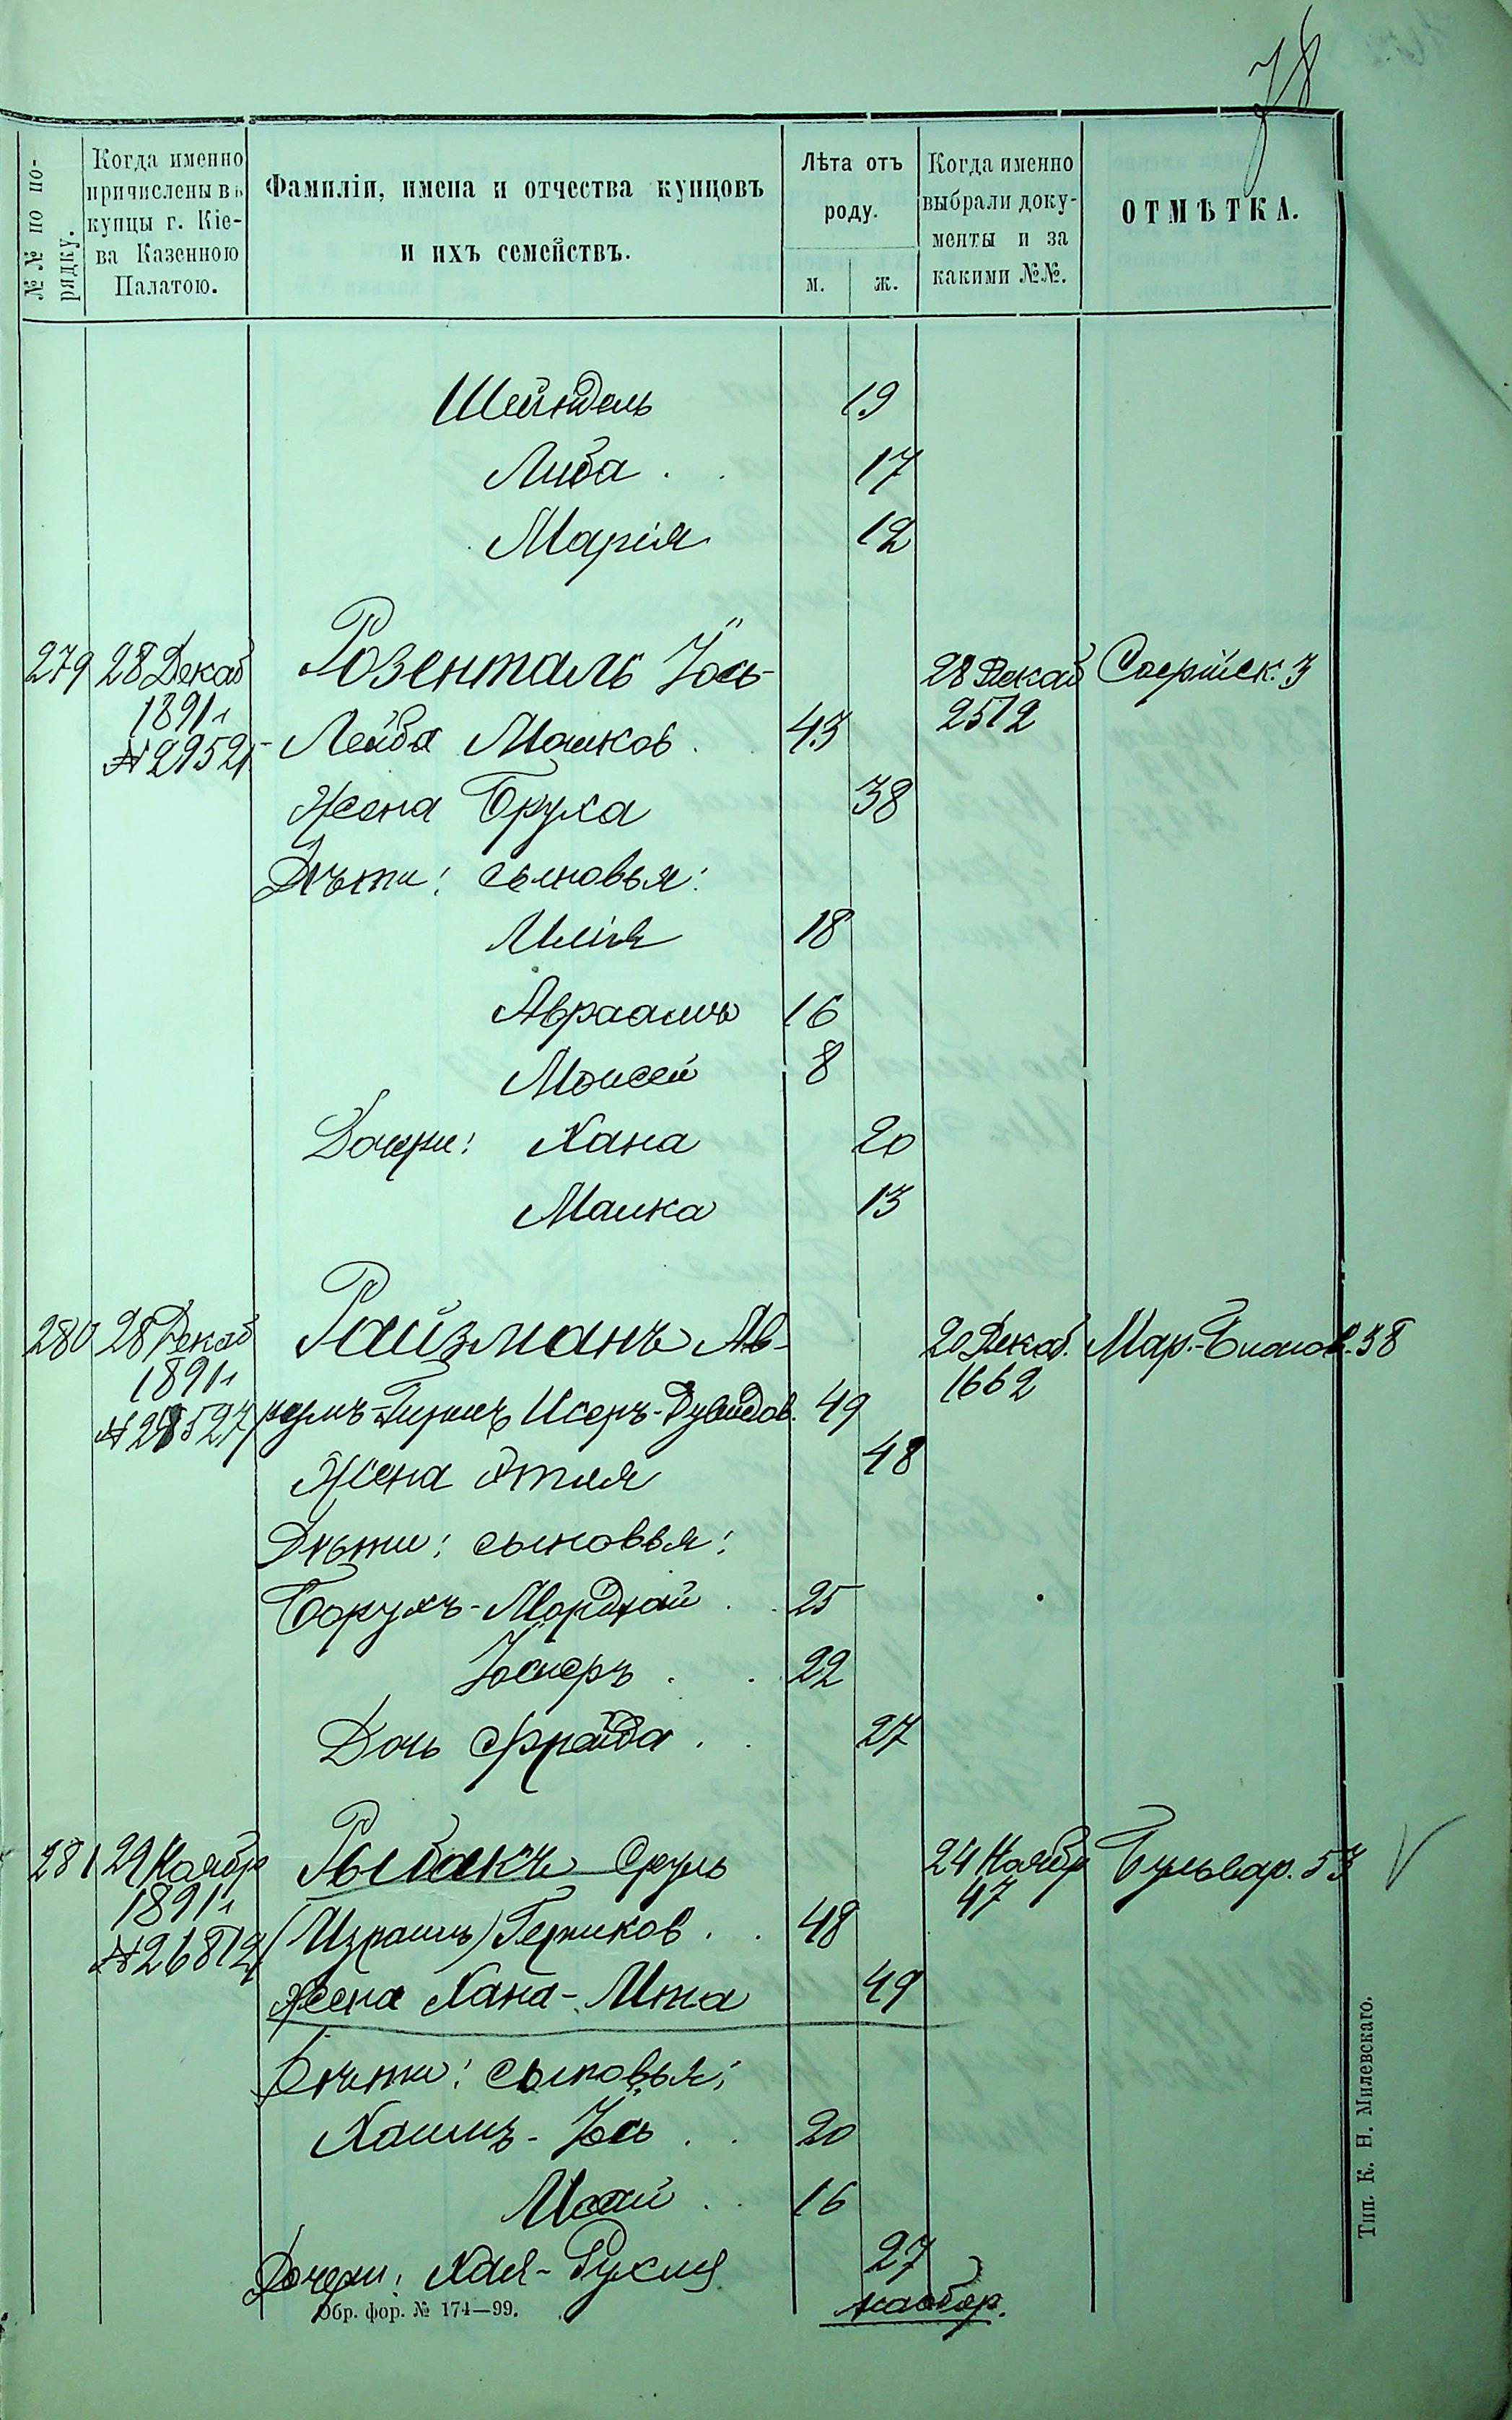 78
№№ по порядку.
Когда именно причислены въ купцы г. Кіева Казенною Палатою.
Фамиліи, имена и отчества купцовъ и ихъ семействъ.
Лѣта отъ роду.
м. ж.
Когда именно выбрали документы и за какими №№.
ОТМѢТКА.
Шейндель 19
Либа . . 17
Марія 12
279 28 Декаб Розенталь Іось- 28 Декаб
1891 г Лейба Машков . 43 2512
№ 29521
Жена Бруха 38
Дѣти: сыновья:
Илія 18
Авраамъ 16
Моисей 8
Дочери: Хана 20
Малка 13
280 28 Декаб Райзманъ Ав- 20 Декаб. 38
1891 г румъ-Гершъ Исеръ-Дувидов. 49 1662
Жена Этля 48
Дѣти: сыновья:
Борухъ-Мордхай . . 25
. . 22
Дочь Фрайда . . 27
281 29 Ноябр Рыбакъ Сруль 24 Ноябр Бульвар. 53
1891 г (Израиль) Гершков . . 48 47
№ 26812
Жена Хана-Ита 49
Дѣти: сыновья:
Хаимъ-Іось . . 20
Исай . . 16
Дочери: Хая-Рухля 27
Обр. фор. № 174—99.
Тип. К. Н. Милевскаго.